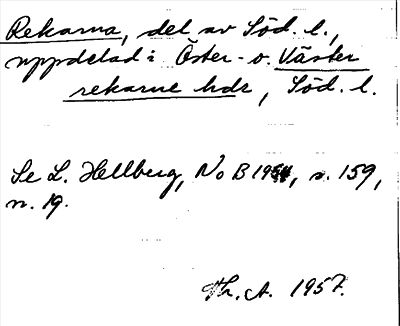 Rekarna, del av Söd. l.,
uppdelad i Öster- o. Väster
rekarne hdr, Söd. l.
Se L. Hellberg, NoB 1954, s. 159,
n. 19.
Th. A. 1957.